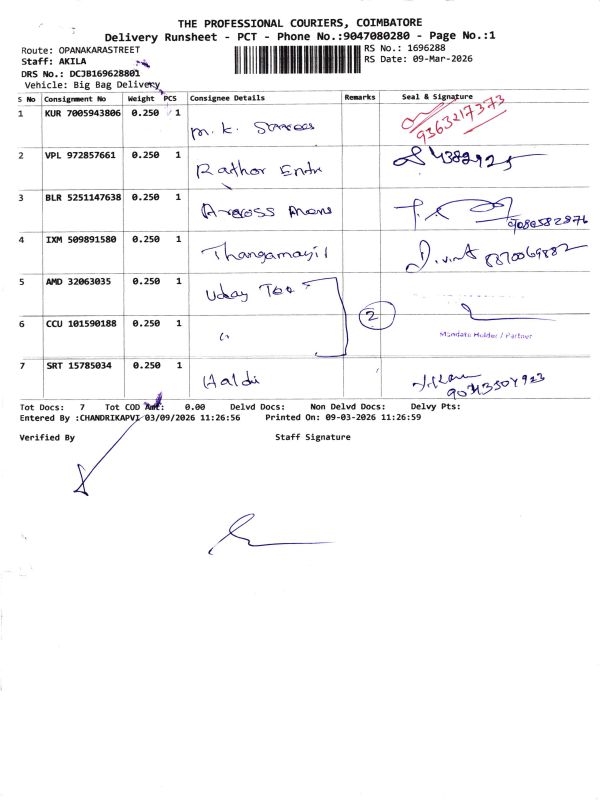 THE PROFESSIONAL COURIERS, COIMBATORE
Delivery Runsheet - PCT - Phone No.:9047080280 - Page No.:1
Route: OPANAKARASTREET
RS No.: 1696288
Staff: AKILA
RS Date: 09-Mar-2026
DRS No.: DCJB169628801
Vehicle: Big Bag Delivery
S No Consignment No Weight PCS Consignee Details Remarks Seal & Signature
1 KUR 7005943806 0.250 1 M.K. 9363217373
2 VPL 972857661 0.250 1 Rathor
3 BLR 5251147638 0.250 1
4 IXM 509891580 0.250 1 Thangamayil
5 AMD 32063035 0.250 1 Uday Tex
2
6 CCU 101590188 0.250 1 "
Mandate Holder / Partner
7 SRT 15785034 0.250 1 Haldi
Tot Docs: 7 Tot COD Amt: 0.00 Delvd Docs: Non Delvd Docs: Delvy Pts:
Entered By :CHANDRIKAPVI 03/09/2026 11:26:56 Printed On: 09-03-2026 11:26:59
Verified By Staff Signature